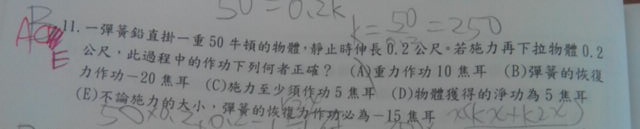 50 = 0.2k
k = 50/0.2 = 250
B
ACE
E
11. 一彈簧鉛直掛一重 50 牛頓的物體,靜止時伸長 0.2 公尺。若施力再下拉物體 0.2
公尺,此過程中的作功下列何者正確? (A)重力作功 10 焦耳 (B)彈簧的恢復
力作功-20 焦耳 (C)施力至少須作功 5 焦耳 (D)物體獲得的淨功為 5 焦耳
(E)不論施力的大小,彈簧的恢復力作功必為-15 焦耳